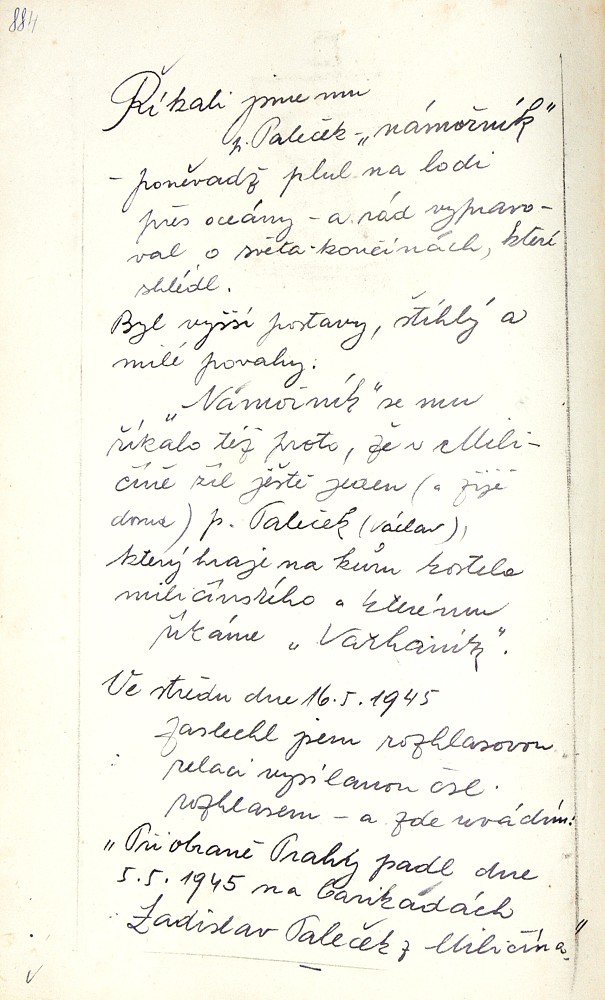 884
Říkali jsme mu
p. Paleček - „námořník"
- poněvadž plul na lodi
přes oceány - a rád vypravo-
val o světa-končinách, které
shlédl.
Byl vyšší postavy, štíhlý a
milé povahy.
„Námořník" se mu
říkalo též proto, že v Mili-
číně žil ještě jeden (a žije
doma) p. Paleček (Václav),
který hraje na kůru kostela
miličínského a kterému
říkáme „Varhaník".
Ve středu dne 16.5.1945
zaslechl jsem rozhlasovou
relaci vysílanou čsl.
rozhlasem - a zde uvádím:
„Při obraně Prahy padl dne
5.5.1945 na barikádách
Ladislav Paleček z Miličína."